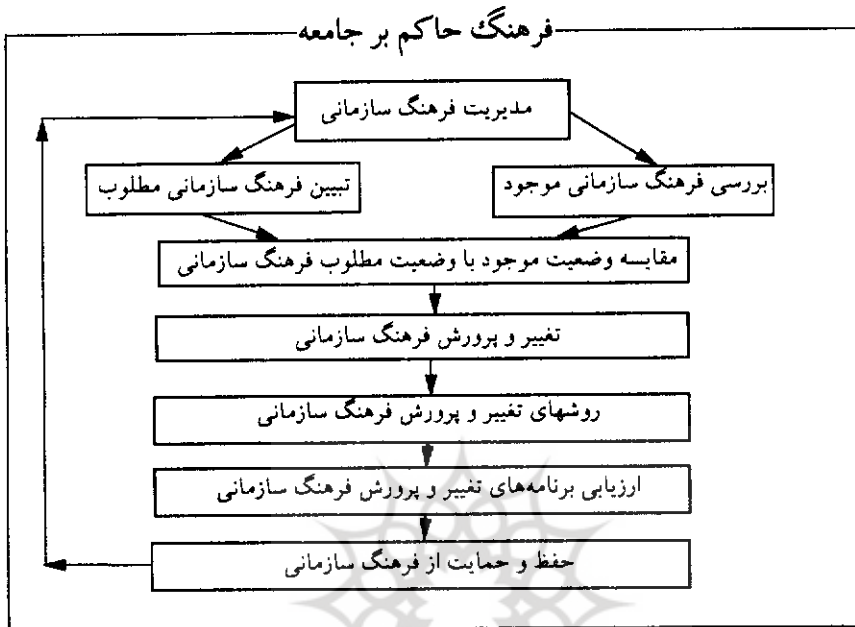 فرهنگ حاکم بر جامعه
مدیریت فرهنگ سازمانی
بررسی فرهنگ سازمانی موجود
تبیین فرهنگ سازمانی مطلوب
مقایسه وضعیت موجود با وضعیت مطلوب فرهنگ سازمانی
تغییر و پرورش فرهنگ سازمانی
روشهای تغییر و پرورش فرهنگ سازمانی
ارزیابی برنامه‌های تغییر و پرورش فرهنگ سازمانی
حفظ و حمایت از فرهنگ سازمانی